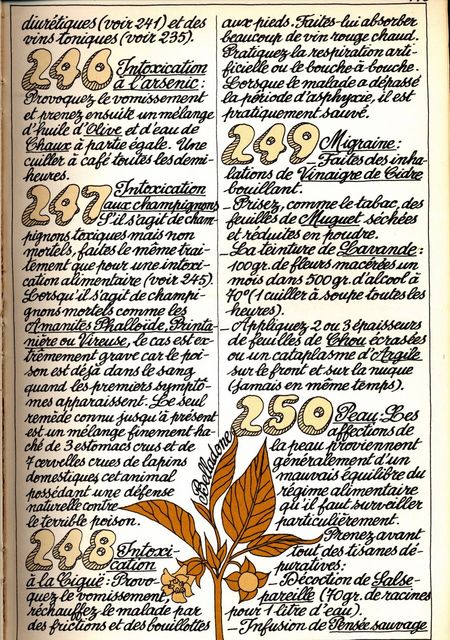 diurétiques (voir 241) et des
vins toniques (voir 235).
246 Intoxication
à l'arsenic :
Provoquez le vomissement
et prenez ensuite un mélange
d'huile d'Olive et d'eau de
Chaux à partie égale. Une
cuiller à café toutes les demi-
heures.
247 Intoxication
aux champignons
S'il s'agit de cham-
pignons toxiques mais non
mortels, faites le même trai-
tement que pour une intoxi-
cation alimentaire (voir 245).
Lorsqu'il s'agit de champi-
gnons mortels comme les
Amanites Phalloïde, Printa-
nière ou Vireuse, le cas est ex-
trêmement grave car le poi-
son est déjà dans le sang
quand les premiers symptô-
mes apparaissent. Le seul
remède connu jusqu'à présent
est un mélange finement ha-
ché de 3 estomacs crus et de
7 cervelles crues de lapins
domestiques cet animal
possédant une défense
naturelle contre
le terrible poison.
248 Intoxi-
cation
à la Ciguë : Provo-
quez le vomissement,
réchauffez le malade par
des frictions et des bouillottes
aux pieds. Faites-lui absorber
beaucoup de vin rouge chaud.
Pratiquez la respiration arti-
ficielle ou le bouche à bouche.
Lorsque le malade a dépassé
la période d'asphyxie, il est
pratiquement sauvé.
249 Migraine :
– Faites des inha-
lations de Vinaigre de Cidre
bouillant.
– Prisez, comme le tabac, des
feuilles de Muguet séchées
et réduites en poudre.
– La teinture de Lavande :
100 gr. de fleurs macérées un
mois dans 500 gr. d'alcool à
40° (1 cuiller à soupe toutes les
heures).
– Appliquez 2 ou 3 épaisseurs
de feuilles de Chou écrasées
ou un cataplasme d'Argile
sur le front et sur la nuque
(jamais en même temps).
250 Peau : Les
affections de
la peau proviennent
généralement d'un
mauvais équilibre du
régime alimentaire
qu'il faut surveiller
particulièrement.
Prenez avant
tout des tisanes dé-
puratives :
– Décoction de Salse-
pareille (70 gr. de racines
pour 1 litre d'eau).
– Infusion de Pensée sauvage
Belladone